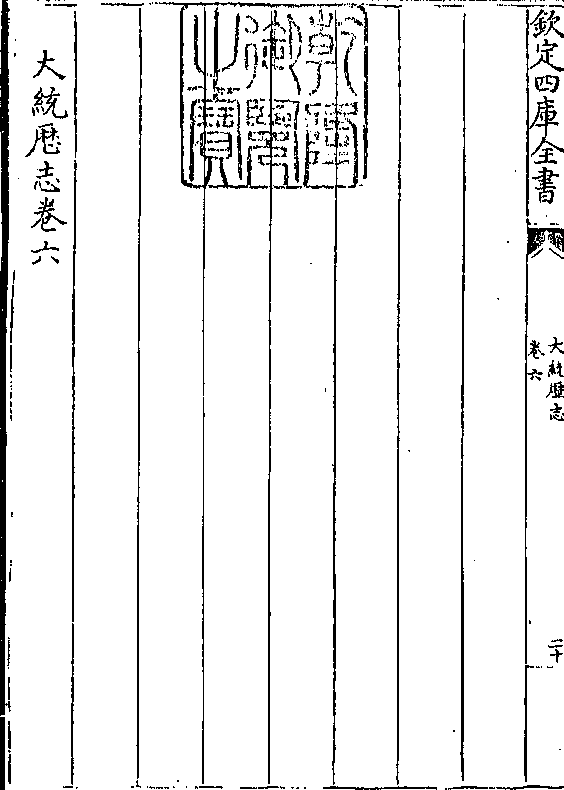 欽定四庫全書
大統歷志
卷六
二十
乾隆
御覽
之寶
大統歷志卷六